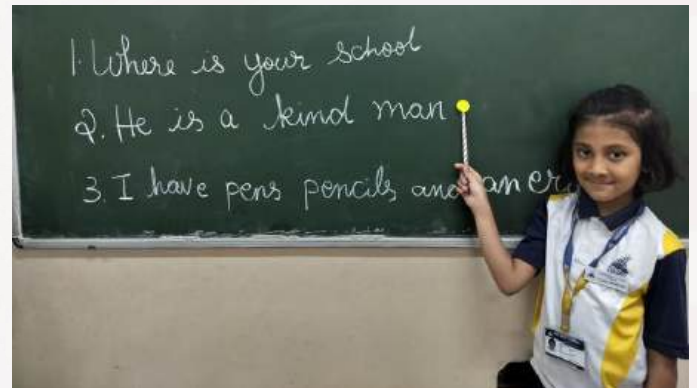 1. Where is your school
2. He is a kind man
3. I have pens pencils and an er